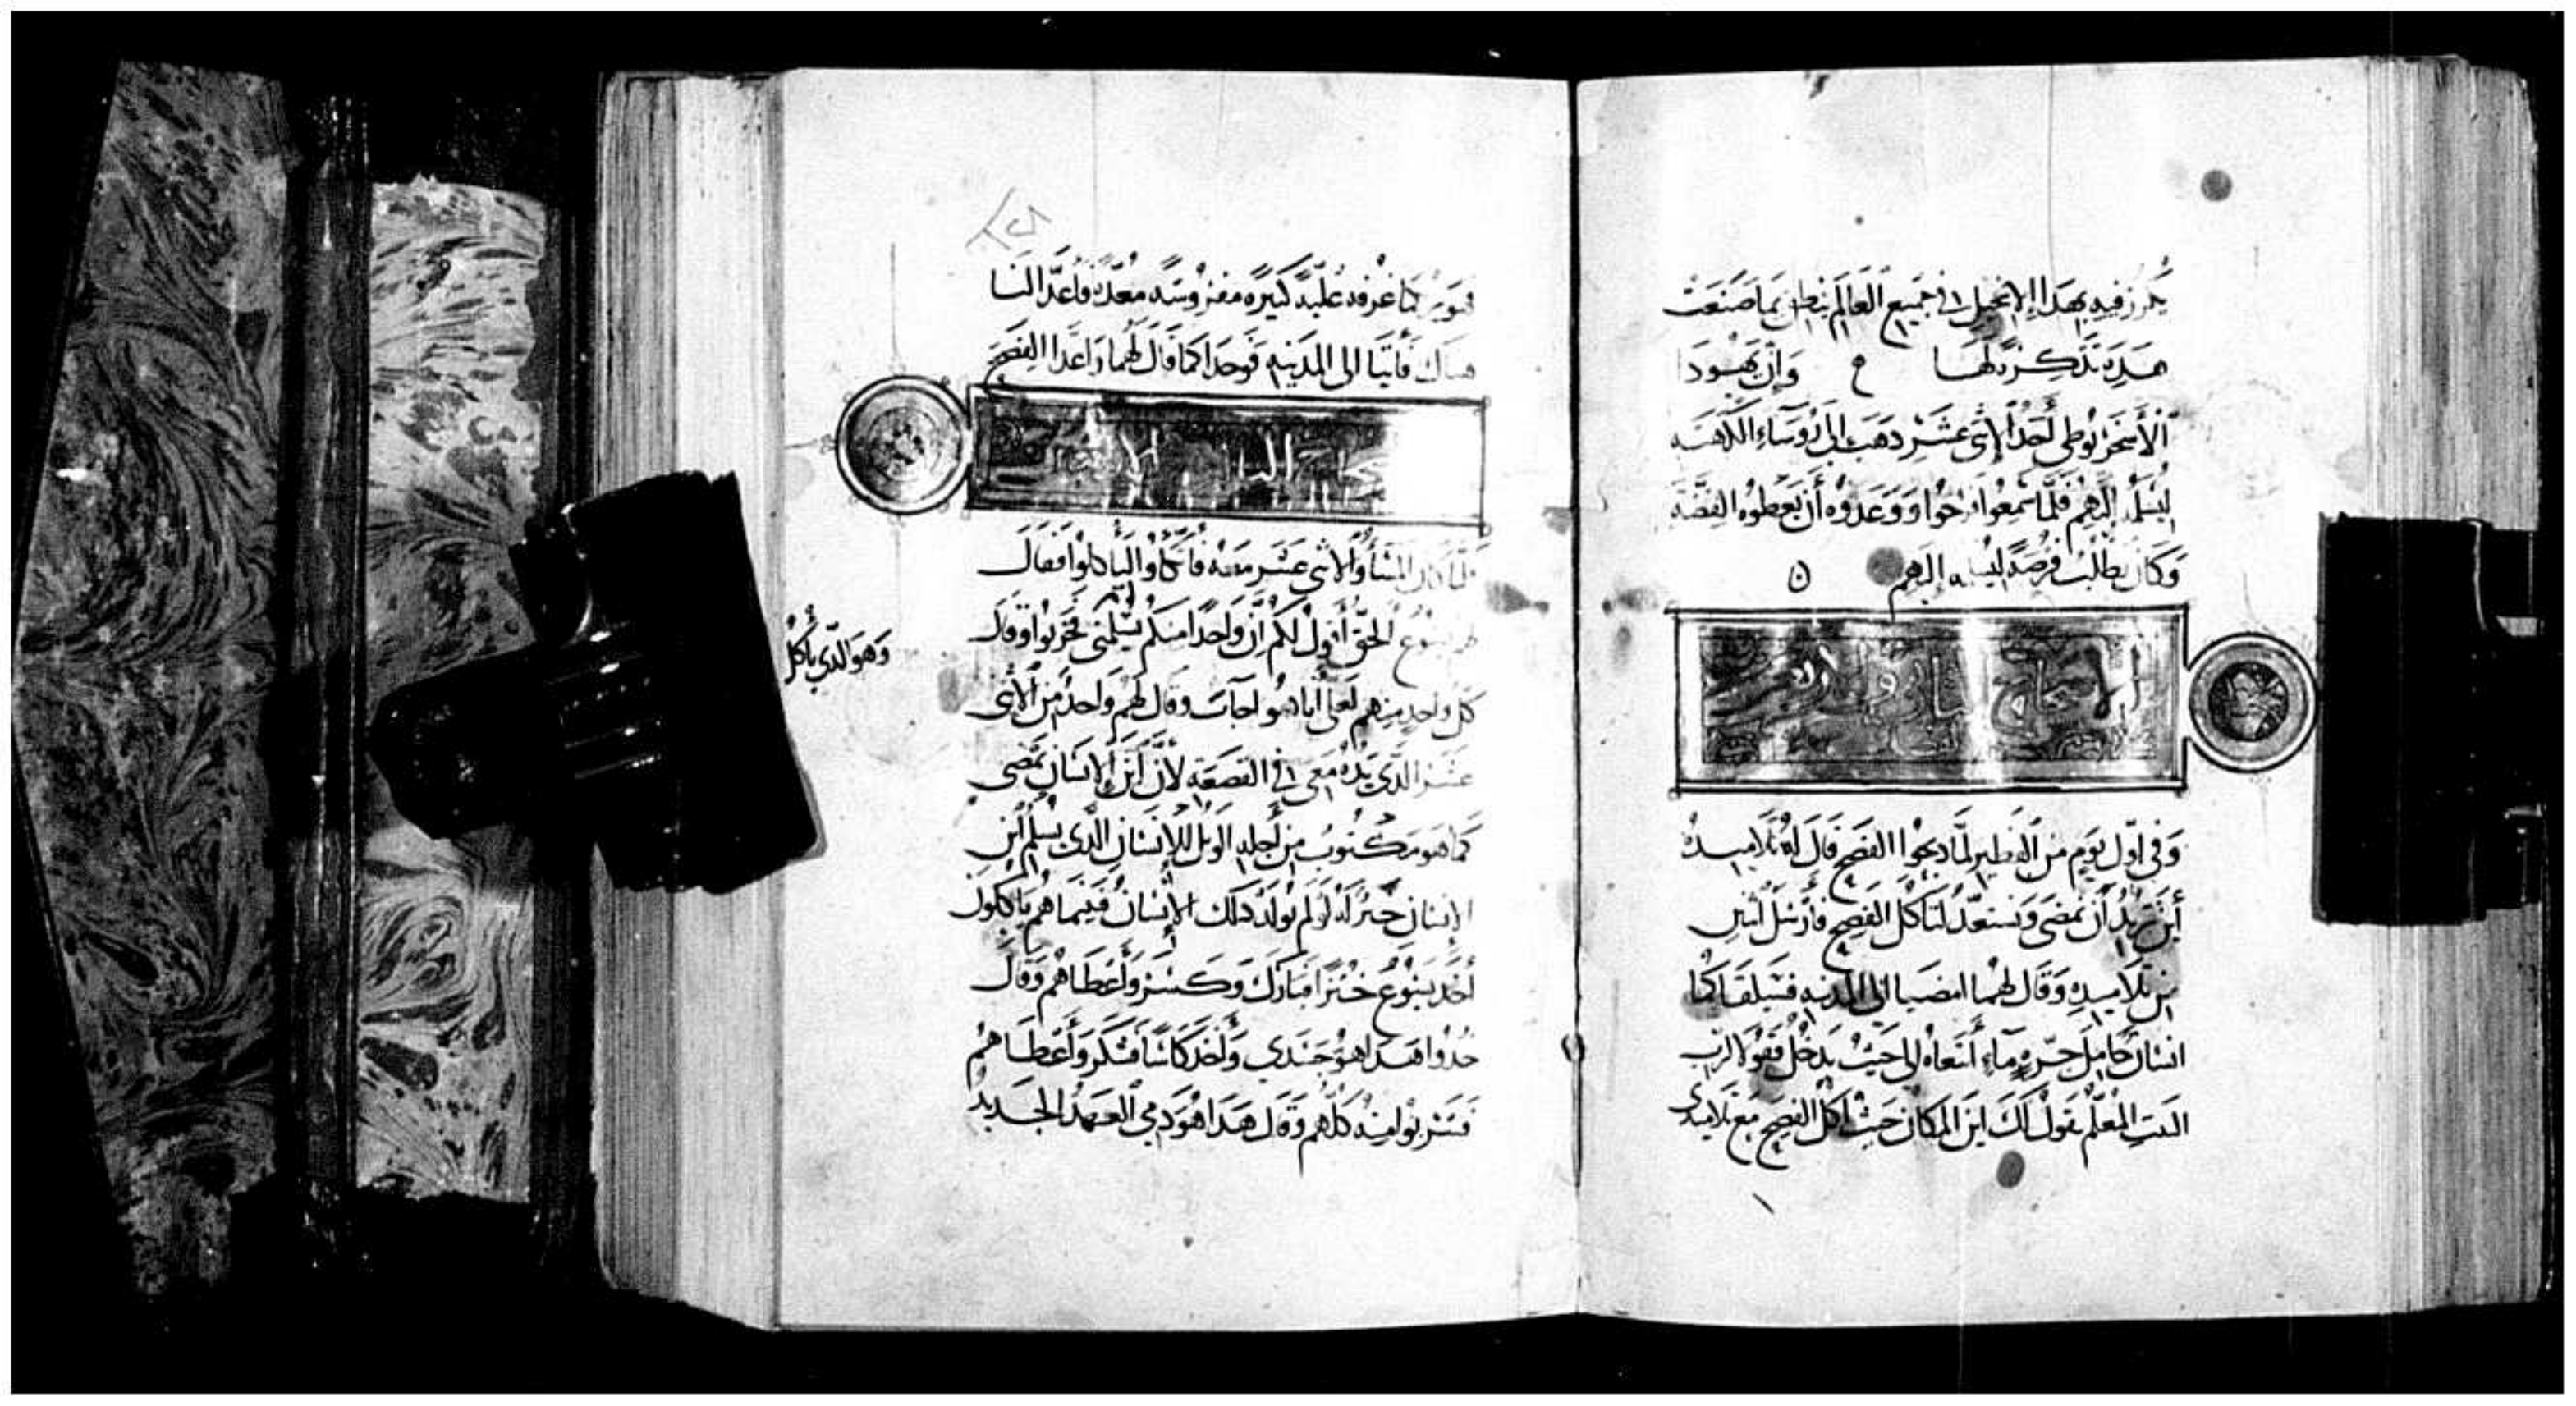 يكرز فيه بهذا الإنجيل في جميع العالم ينطق بما صنعت
هذه تذكرة لها وإن يهودا
الأسخريوطي أحد الإثني عشر ذهب إلى رؤساء الكهنه
ليسلمه إليهم فلما سمعوا فرحوا ووعدوه أن يعطوه الفضه
وكان يطلب فرصة ليسلمه إليهم
وفي أول يوم من الفطير لما ذبحوا الفصح قال له تلاميذه
أين تريد أن نمضي ونستعد لتاكل الفصح فأرسل اثنين
من تلاميذه وقال لهما امضيا الى المدينه فسيلقاكما
انسان حامل جرة ماء اتبعاه إلى حيث يدخل فقولا لرب
البيت المعلم يقول لك اين المكان حيث آكل الفصح مع تلاميذي
فهو يريكما غرفه علية كبيره مفروشه معدة فأعدا لنا
هناك فأتيا الى المدينه فوجدا كما قال لهما واعدا الفصح
كان المساء والاثني عشر معه فاتكاوا ليأكلوا فقال
يسوع الحق أقول لكم إن واحدا منكم يسلمني فحزنوا وقال
وهو الذي يأكل
كل واحد منهم لعلي أنا هو اجاب وقال لهم واحد من الاثني
عشر الذي يده معي في القصعه لأن ابن الإنسان يمضي
كما هو مكتوب من أجله الويل للإنسان الذي يسلم ابن
الإنسان خير له لو لم يولد ذلك الإنسان فبينما هم يأكلون
أخذ يسوع خبزا فبارك وكسر وأعطاهم وقال
خذوا هذا هو جسدي وأخذ كاسا فشكر وأعطاهم
فشربوا منه كلهم وقال هذا هو دمي العهد الجديد